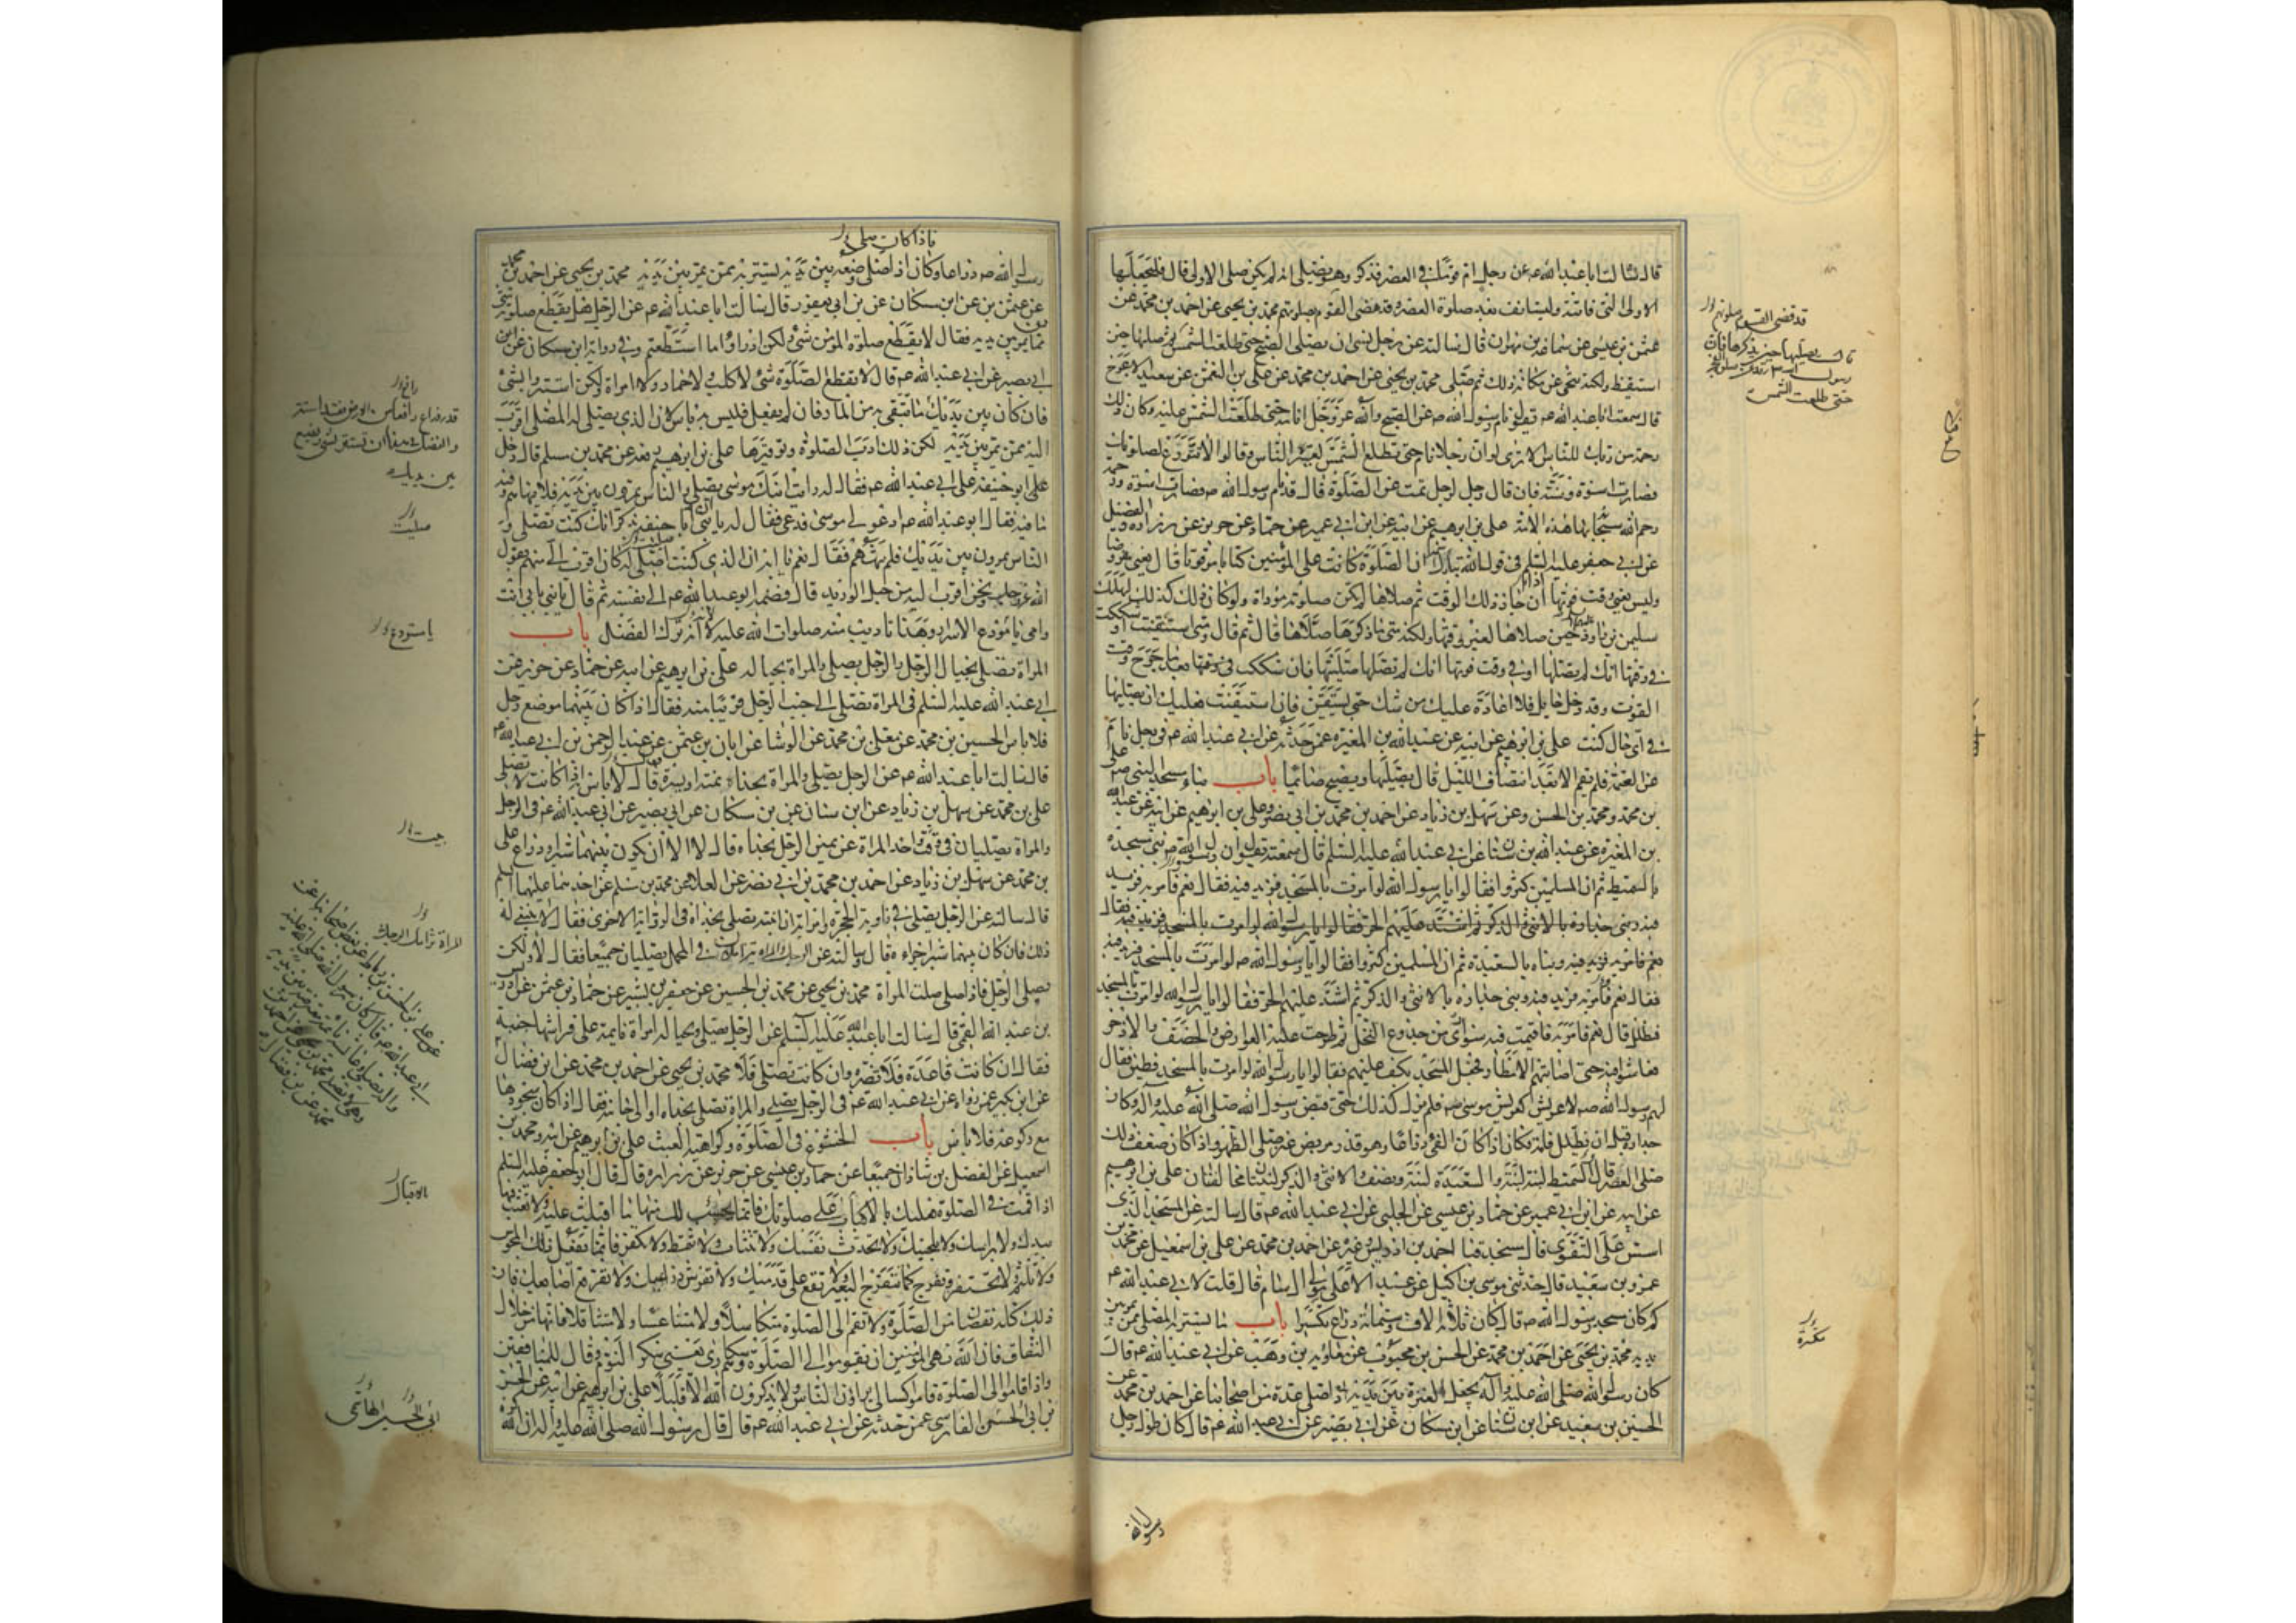 قال سالت ابا عبد الله عه عن رجل ام قوما في العصر فذكر وهو يصلي انه لم يكن صلى الاولى قال فليجعلها
الاولى التي فاتته وليستانف بعد صلوة العصر وقد مضى القوم بصلوتهم محمد بن يحيى عن احمد بن محمد عن
عثمن بن عيسى عن سماعة بن مهران قال سالته عن رجل نسي ان يصلي الصبح حتى طلعت الشمس قال يصليها حين
قال سمعت ابا عبد الله عه يقول نام رسول الله صه عن الصبح والله عز وجل انامه حتى طلعت الشمس عليه وكان ذلك
رحمة من ربك للناس الا ترى لو ان رجلا نام حتى تطلع الشمس لعيره الناس وقالوا لا تتورع لصلوتك
فصارت اسوة وسنة فان قال رجل لرجل نمت عن الصلوة قال قد نام رسول الله صه فصارت اسوة ورحمة
رحم الله سبحانه بها هذه الامة علي بن ابرهيم عن ابيه عن ابن ابي عمير عن حماد عن حريز عن زرارة والفضيل
عن ابي جعفر عليه السلم في قول الله تبارك ان الصلوة كانت على المؤمنين كتابا موقوتا قال يعني مفروضا
وليس يعني وقت فوتها ان جاز ذلك الوقت ثم صلاها لم يكن صلوته مؤداة ولو كان ذلك كذلك لهلك
سليمن بن داود حين صلاها لغير وقتها ولكنه متى ما ذكرها صلاها قال ثم قال ومتى استيقنت او شككت
في وقتها انك لم تصلها او في وقت فوتها انك لم تصلها صليتها فان شككت بعد ما خرج وقت
الفوت وقد دخل حايل فلا اعادة عليك من شك حتى تستيقن فان استيقنت فعليك ان تصليها
في اي حال كنت علي بن ابرهيم عن ابيه عن عبد الله بن المغيرة عمن حدثه عن ابي عبد الله عه في رجل نام
عن العتمة فلم يقم الا بعد انتصاف الليل قال يصليها ويصبح صائما باب بناء مسجد النبي صه علي
بن محمد ومحمد بن الحسن عن سهل بن زياد عن احمد بن محمد بن ابي نصر وعلي بن ابراهيم عن ابيه عن عبد الله
بن المغيرة عن عبد الله بن سنان عن ابي عبد الله عليه السلم قال سمعته يقول ان رسول الله صه بنى مسجده
بالسميط ثم ان المسلمين كثروا فقالوا يا رسول الله لو امرت بالمسجد فزيد فيه فقال نعم فامر به فزيد
فيه وبنى جداره بالانثى والذكر ثم اشتد عليهم الحر فقالوا يا رسول الله لو امرت بالمسجد
نعم فامر به فزيد فيه وبناه بالسعيدة ثم ان المسلمين كثروا فقالوا يا رسول الله صه لو امرت بالمسجد فزيد فيه
فقال نعم فامر به فزيد فيه وبنى جداره بالانثى والذكر ثم اشتد عليهم الحر فقالوا يا رسول الله لو امرت بالمسجد
فظلل قال نعم فامر به فاقيمت فيه سواري من جذوع النخل ثم طرحت عليه العوارض والخصف والاذخر
فعاشوا فيه حتى اصابتهم الامطار فجعل المسجد يكف عليهم فقالوا يا رسول الله لو امرت بالمسجد فطين فقال
لهم رسول الله صه لا عريش كعريش موسى عه فلم يزل كذلك حتى قبض رسول الله صلى الله عليه وآله وكان
جداره قبل ان يظلل قامة فكان اذا كان الفئ ذراعا وهو قدر مربض عنز صلى الظهر واذا كان ضعف ذلك
صلى العصر قال السميط لبنة لبنة والسعيدة لبنة ونصف والانثى والذكر لبنتان مخالفتان علي بن ابرهيم
عن ابيه عن ابن ابي عمير عن حماد بن عيسى عن الحلبي عن ابي عبد الله عه قال سالته عن المسجد الذي
اسس على التقوى قال مسجد قبا احمد بن ادريس وغيره عن احمد بن محمد عن علي بن اسمعيل عن محمد بن
عمرو بن سعيد قال حدثني موسى بن اكيل عن عبد الاعلى مولى ال سام قال قلت لابي عبد الله عه
كم كان مسجد رسول الله صه قال كان ثلاثة الاف وستمائة ذراع مكسرا باب ما يستتر به المصلي ممن يمر بين
يديه محمد بن يحيى عن احمد بن محمد عن الحسن بن محبوب عن معاوية بن وهب عن ابي عبد الله عه قال
كان رسول الله صلى الله عليه وآله يجعل العنزة بين يديه اذا صلى عدة من اصحابنا عن احمد بن محمد عن
الحسين بن سعيد عن ابن سنان عن ابن مسكان عن ابي بصير عن ابي عبد الله عه قال كان طول رحل
قد قضى القوم صلوتهم
حتى طلعت الشمس
مكسرة
رسول الله
فاذا كان صلى
رسول الله صه ذراعا وكان اذا صلى وضعه بين يديه ليستتر به ممن يمر بين يديه محمد بن يحيى عن احمد بن محمد
عن عثمن بن عن ابن مسكان عن بن ابي يعفور قال سالت ابا عبد الله عه عن الرجل هل يقطع صلوته شئ
مما يمر بين يديه فقال لا يقطع صلوة المؤمن شئ ولكن ادراوا ما استطعتم وفي رواية ابن مسكان عن
ابي بصير عن ابي عبد الله عه قال لا يقطع الصلوة شئ لا كلب ولا حمار ولا امراة ولكن استتروا بشئ
فان كان بين يديك ما تتقي به من المار فان لم يفعل فليس به باس لان الذي يصلي له المصلي اقرب
اليه ممن يمر بين يديه لكن ذلك ادب الصلوة وتوقيرها علي بن ابرهيم رفعه عن محمد بن مسلم قال دخل
ابو حنيفة على ابي عبد الله عه فقال له رايت ابنك موسى يصلي والناس يمرون بين يديه فلا ينهاهم وفيه
ما فيه فقال ابو عبد الله عه ادعوا لي موسى فدعي فقال له يا بني ان ابا حنيفة يذكر انك كنت تصلي و
الناس يمرون بين يديك فلم تنههم فقال نعم يا ابه ان الذي كنت اصلي له كان اقرب الي منهم يقول
الله عز وجل ونحن اقرب اليه من حبل الوريد قال فضمه ابو عبد الله عه الى نفسه ثم قال يا بني بابي انت
وامي يا مودع الاسرار وهذا تاديب منه صلوات الله عليه لا انه ترك الفضل باب
المراة تصلي بحيال الرجل والرجل يصلي والمراة بحياله علي بن ابرهيم عن ابيه عن حماد عن حريز عن
ابي عبد الله عليه السلم في المراة تصلي الى جنب الرجل قريبا منه فقال اذا كان بينهما موضع رحل
فلا باس الحسين بن محمد عن معلى بن محمد عن الوشا عن ابان بن عثمن عن عبد الرحمن بن ابي عبد الله
قال سالت ابا عبد الله عه عن الرجل يصلي والمراة بحذاه يمنه او يسره قال لا باس اذا كانت لا تصلي
علي بن محمد عن سهل بن زياد عن ابن سنان عن بن مسكان عن ابي بصير عن ابي عبد الله عه في الرجل
والمراة يصليان في وقت واحد المراة عن يمين الرجل بحذاه قال لا الا ان يكون بينهما شبر او ذراع علي
بن محمد عن سهل بن زياد عن احمد بن محمد بن ابي نصر عن العلا عن محمد بن مسلم عن احدهما عليهما السلم
قال سالته عن الرجل يصلي في زاوية الحجرة وامراته او ابنته تصلي بحذاه في الزاوية الاخرى فقال لا ينبغي له
ذلك فان كان بينهما شبر اجزاه قال وسالته عن الرجل والمراة يتزاملان في المحمل يصليان جميعا فقال لا ولكن
يصلي الرجل فاذا صلى صلت المراة محمد بن يحيى عن محمد بن الحسين عن جعفر بن بشير عن حماد بن عثمن عن ادريس
بن عبد الله القمي قال سالت ابا عبد الله عليه السلم عن الرجل يصلي وبحياله امراة قايمة على فراشها جنبة
فقال ان كانت قاعدة فلا تضره وان كانت تصلي فلا محمد بن يحيى عن احمد بن محمد عن ابن فضال
عن ابن بكير عمن رواه عن ابي عبد الله عه في الرجل يصلي والمراة تصلي بحذاه او الى جانبه فقال اذا كان سجودها
مع ركوعه فلا باس باب الخشوع في الصلوة وكراهية العبث علي بن ابرهيم عن ابيه ومحمد بن
اسمعيل عن الفضل بن شاذان جميعا عن حماد بن عيسى عن حريز عن زرارة قال قال ابو جعفر عليه السلم
اذا قمت في الصلوة فعليك بالاقبال على صلوتك فانما يحسب لك منها ما اقبلت عليه ولا تعبث فيها
بيدك ولا براسك ولا بلحيتك ولا تحدث نفسك ولا تتثاب ولا تتمط ولا تكفر فانما يفعل ذلك المجوس
ولا تلثم ولا تحتفز وتفرج كما يتفرج البعير ولا تقع على قدميك ولا تفترش ذراعيك ولا تفرقع اصابعك فان
ذلك كله نقصان من الصلوة ولا تقم الى الصلوة متكاسلا ولا متناعسا ولا متثاقلا فانها من خلال
النفاق فان الله نهى المؤمنين ان يقوموا الى الصلوة وهم سكارى يعني سكر النوم وقال للمنافقين
واذا قاموا الى الصلوة قاموا كسالى يراؤن الناس ولا يذكرون الله الا قليلا علي بن ابرهيم عن ابيه عن الحسن
بن ابي الحسين الفارسي عمن حدثه عن ابي عبد الله عه قال قال رسول الله صلى الله عليه واله ان الله كره
بين يديك
صليت
يا مستودع
حيث
المراة تزامل الرجل
الاقبال